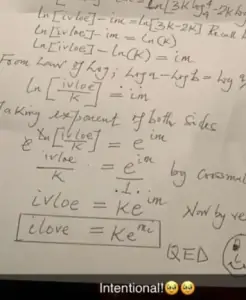 ln[ivloe] - im = ln[3K-2K]
ln[ivloe] - im = ln(K)
Ln[ivloe] - ln(K) = im
From Law of Log; Log a - Log b = Log
ln[ivloe/K] = im
Taking exponent of both sides
e^ln[ivloe/K] = e^im
ivloe/K = e^im/1 by crossmul
ivloe = Ke^im Now by re
ilove = Ke^mi
QED
Intentional!🥺🥺